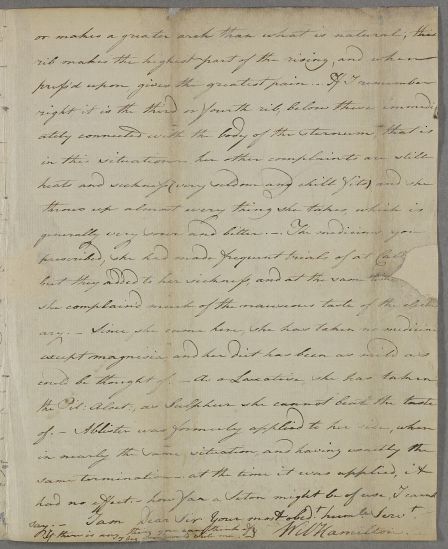 or makes a greater arch than what is natural; this
rib makes the highest part of the rising, and when
press'd upon gives the greatest pain – If I remember
right it is the third or fourth rib, below those immedi-
ately connected with the body of the sternum that is
in this situation – her other complaints are still
heats and sickness (very seldom any chill fits) and she
throws up almost every thing she takes, which is
generally very sour and bitter. – The medicines you
prescribed, she had made frequent trials of at
but they added to her sickness, and at the same time
she complain'd much of the nauseous taste of the elect-
ary. – Since she came here, she has taken no medicine
except magnesia and her diet has been as mild as
could be thought of. – As a Laxative, she has taken
the Pil: Aloet:, as Sulphur she cannot bear the taste
of. – A blister was formerly applied to her side, when
in nearly the same situation, and having exactly the
same termination – at the time it was applied, it
had no effect – how far a Seton might be of use, I cannot
say. – I am Dear Sir Your most obedt humble Servt
Will Hamilton
If there is any thing you can think of